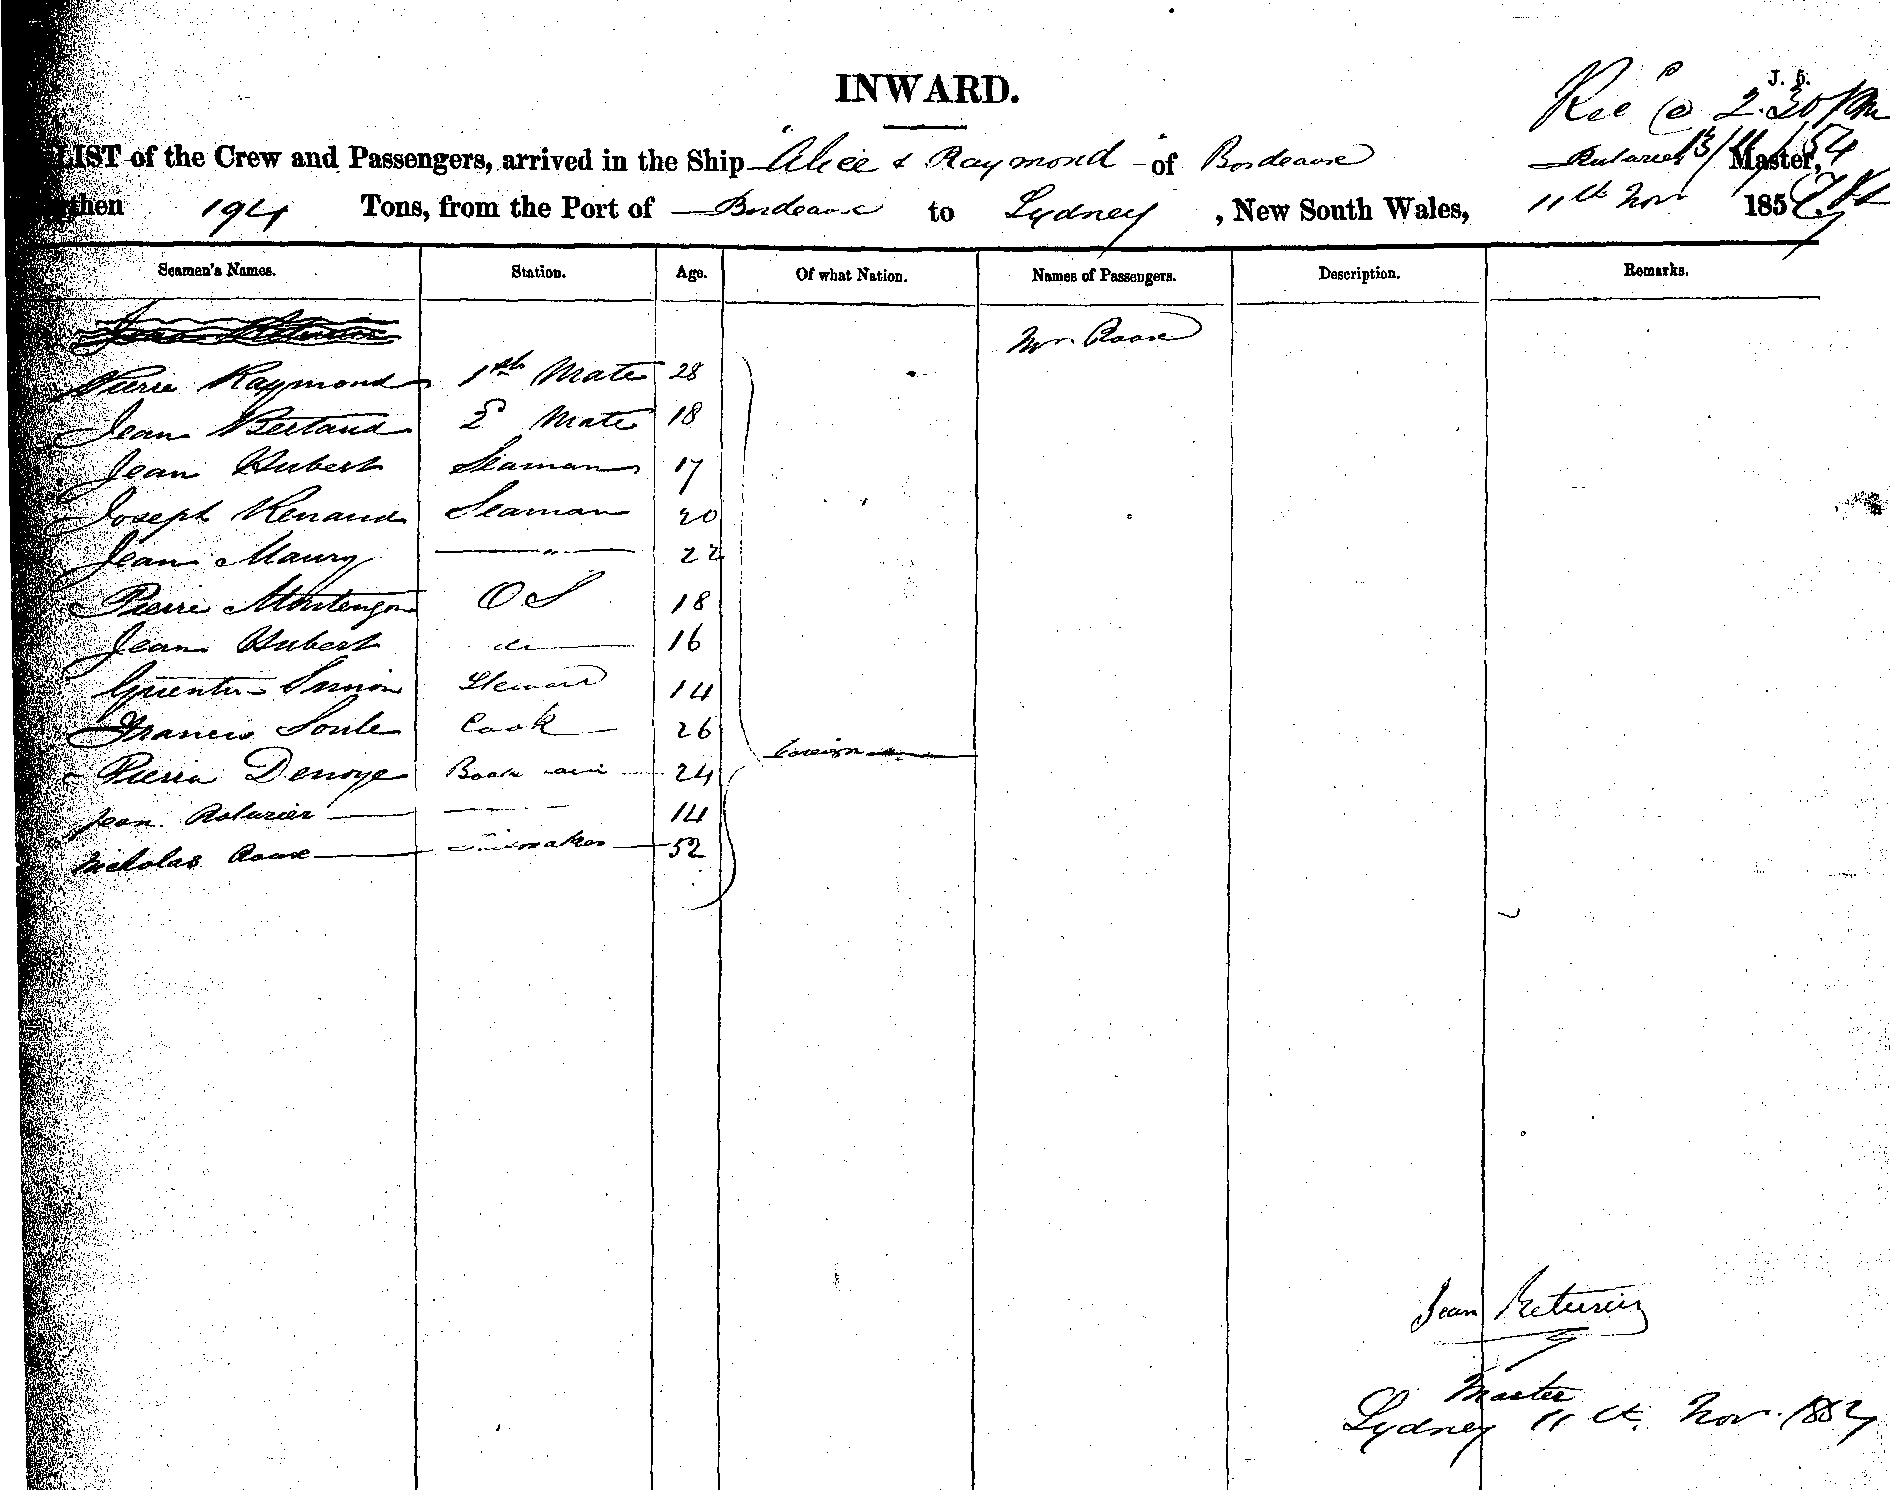 INWARD.
J. G.
Rec @ 2.30 PM
13/11/54
LIST of the Crew and Passengers, arrived in the Ship "Alice & Raymond" of Bordeaux Master,
194 Tons, from the Port of Bordeaux to Sydney, New South Wales, 11th Nov 1854
Seamen's Names. Station. Age. Of what Nation. Names of Passengers. Description. Remarks.
Mr. Roare
Pierre Raymond 1st Mate 28
Jean Bertaud 2d Mate 18
Jean Hubert Seaman 17
Joseph Renaud Seaman 20
Jean Maury " 22
Pierre O S 18
Jean Hubert do 16
Simion Steward 14
Francis Soule Cook 26
Foreign
Pierre Denoye 24
Jean 14
Nicholas Roare 52
Jean
Master
Sydney 11th. Nov. 1854